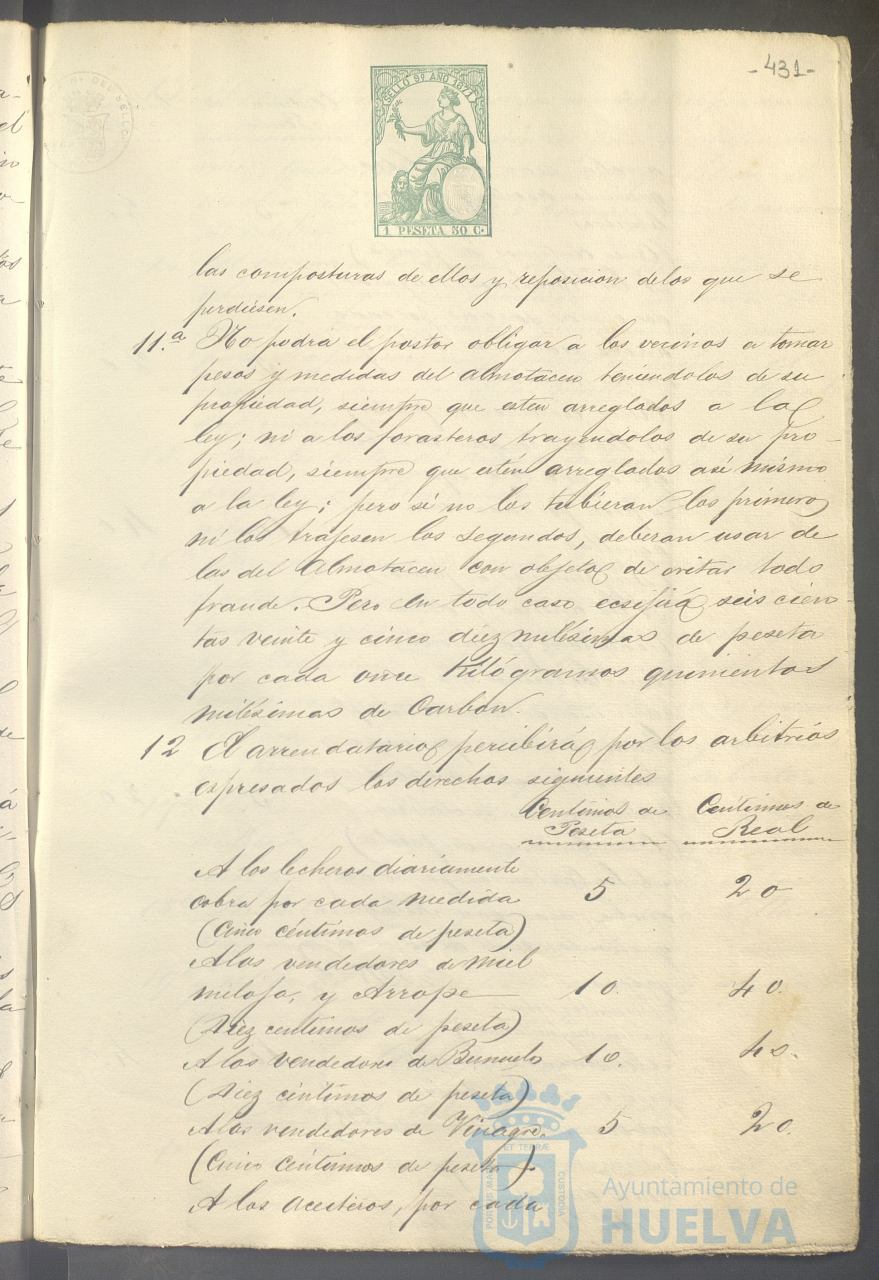 -431-
SELLO 9º AÑO 1877
1 PESETA 50 C.
las composturas de ellos y reposicion delos que se
perdiesen.
11.ª No podrá el postor obligar a los vecinos a tomar
pesos y medidas del Almotacen teniendolos de su
propiedad, siempre que esten arreglados a la
ley; ni a los forasteros trayendolos de su pro-
piedad, siempre que estén arreglados asi mismo
a la ley; pero si no los tubieran los primeros
ni los trajesen los segundos, deberan usar de
las del Almotacen con objeto de evitar todo
fraude. Pero en todo caso ecsijirá seis cien-
tas veinte y cinco diez milésimas de peseta
por cada once Kilógramos quinientos
milésimas de Carbon.
12 El arrendatario percibirá por los arbitrios
espresados los derechos siguientes
Centimos de Peseta Centimos de Real
A los lecheros diariamente
cobra por cada medida 5 20
(Cinco céntimos de peseta)
A los vendedores de miel
meloja, y Arrope 10. 40.
(Diez centimos de peseta)
A los vendedores de Buñuelos 10. 40.
(Diez céntimos de peseta)
A los vendedores de Vinagre. 5 20.
(Cinco Céntimos de peseta)
A los aceiteros, por cada
PORTUS MARIS ET TERRÆ CUSTODIA
Ayuntamiento de
HUELVA